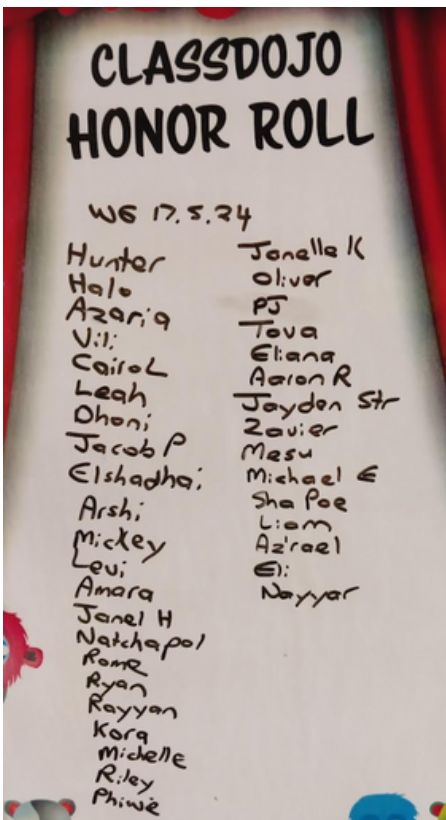 CLASSDOJO
HONOR ROLL
WE 17.5.24
Hunter
Halo
Azaria
Vili
Cairo L
Leah
Dhoni
Jacob P
Elshadhai
Arshi
Mickey
Levi
Amara
Janel H
Natchapol
Rome
Ryan
Rayyan
Kora
Michelle
Riley
Phiwie
Jonella K
Oliver
PJ
Tova
Eliana
Aaron R
Jayden Str
Zavier
Masu
Michael E
Sha Poe
Liam
Az'rael
Eli
Nayyar